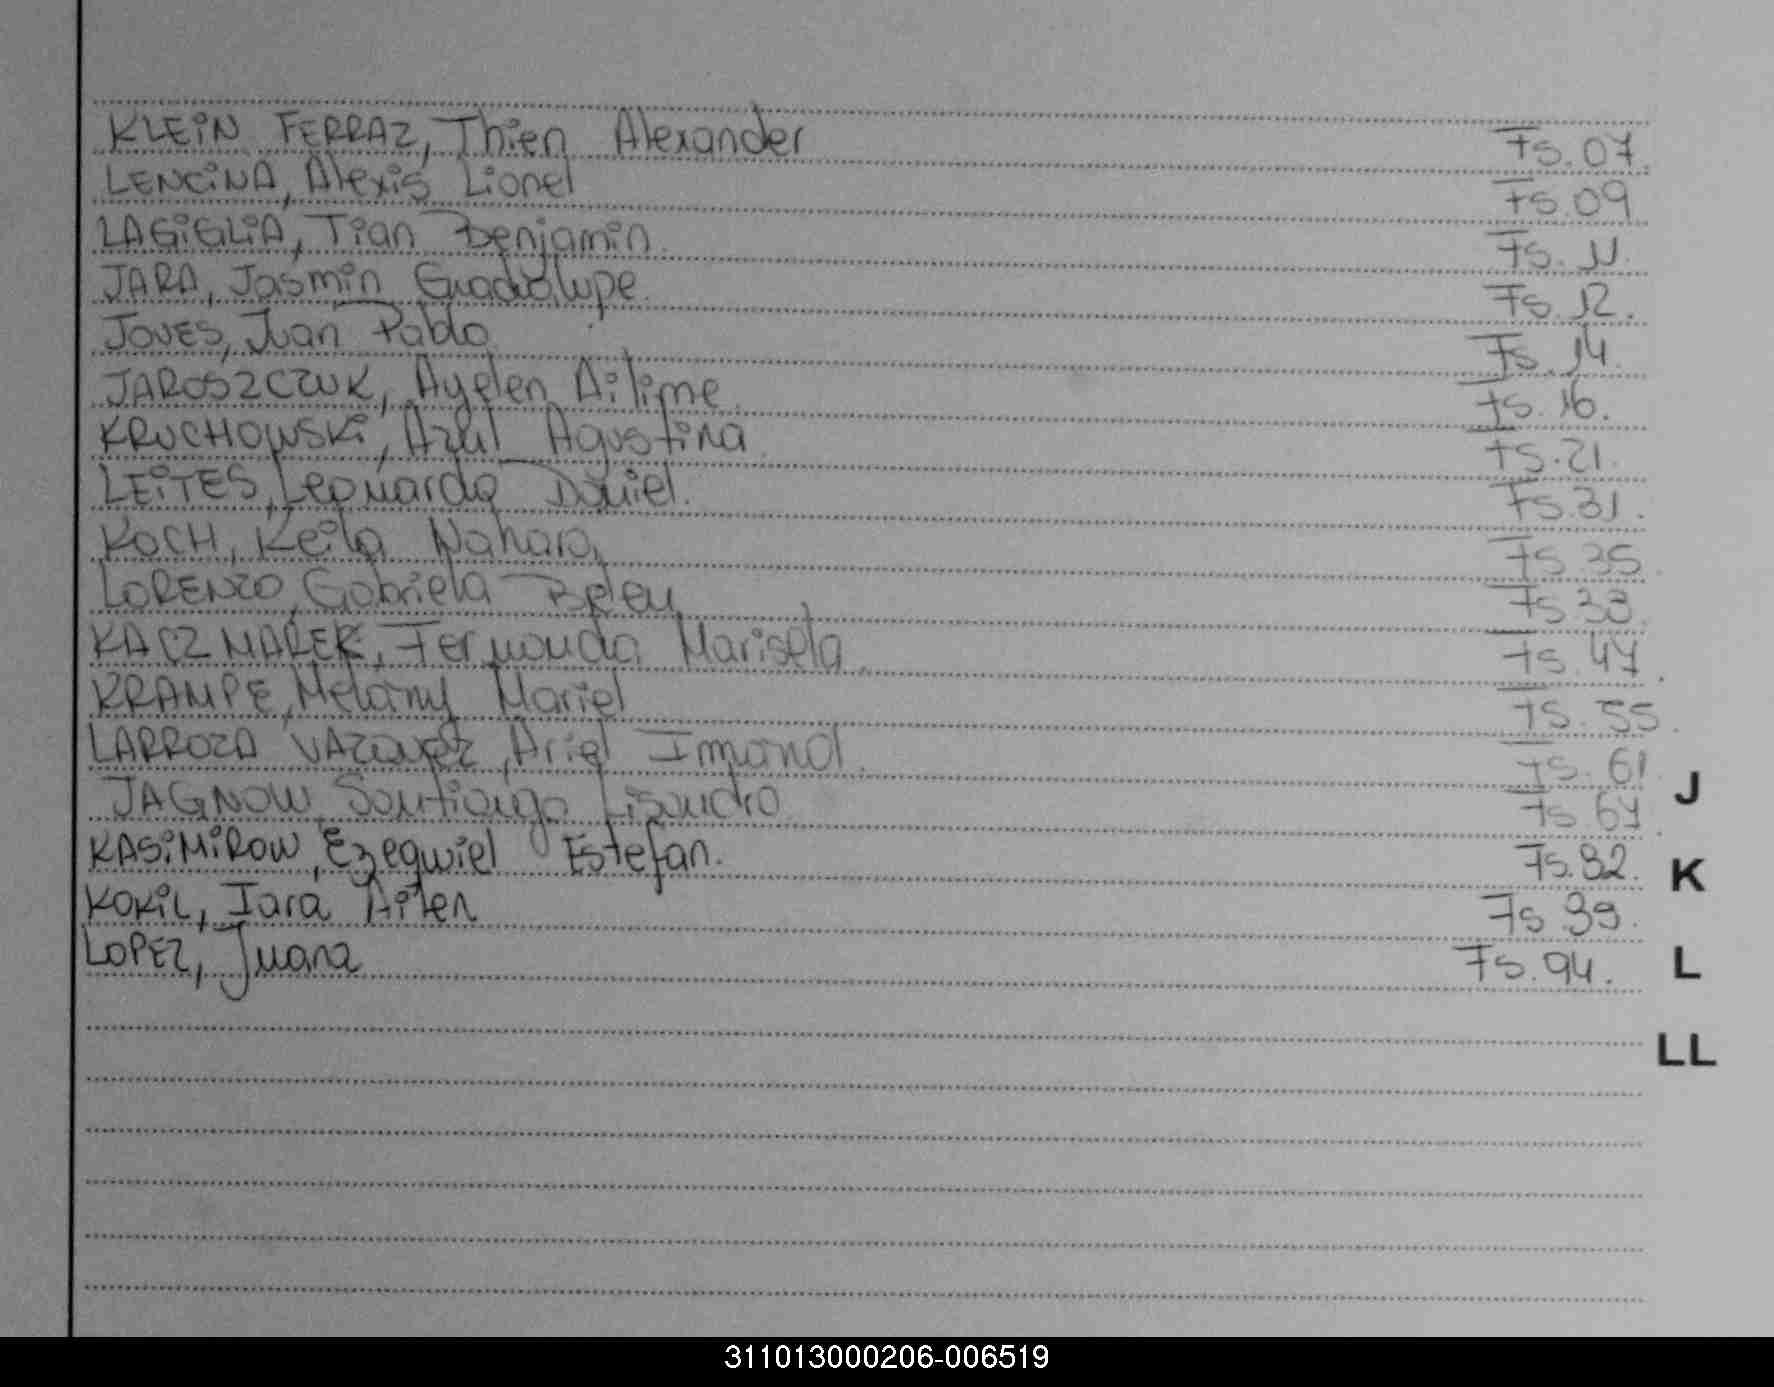 KLEiN FERRAZ, Thien Alexander Fs. 07.
LENCiNA, Alexis Lionel Fs. 09
LAGiGLiA, Tian Benjamin. Fs. 11.
JARA, Jasmin Guadalupe. Fs. 12.
JOVES, Juan Pablo. Fs. 14.
JAROSZCZUK, Ayelen Ailime. Fs. 16.
KRUCHOWSKi, Azul Agustina. Fs. 21.
LEiTES, Leonardo Daniel. Fs. 31.
KOCH, Keila Nahara, Fs. 35.
LORENZO, Gabriela Belen. Fs 33.
KACZMAREK, Fernanda Marisela. Fs. 47.
KRAMPE, Melany Mariel Fs. 55.
LARROZA VAZQUEZ, Ariel Imanol. Fs. 61.
JAGNOW, Santiango Lisandro. Fs 67.
KASiMiROW, Ezequiel Estefan. Fs. 82.
KOKiL, Iara Ailen Fs 89.
LOPEZ, Juana Fs. 94.
J
K
L
LL
311013000206-006519